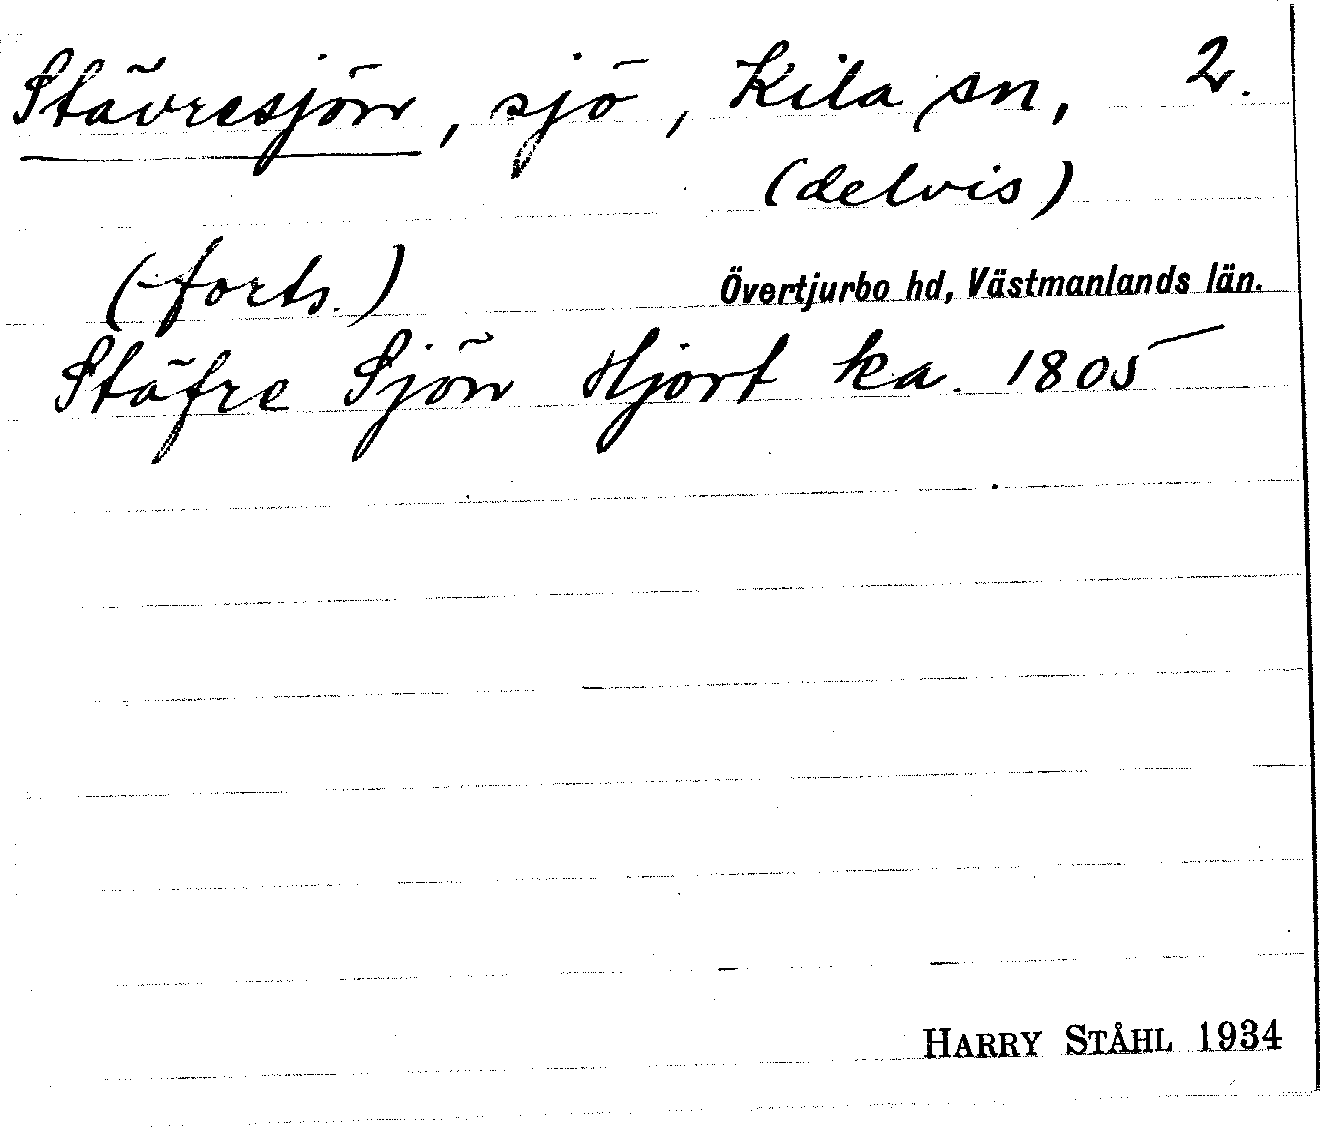 Stävresjön, sjö, Kila sn, 2.
(delvis)
(forts.)
Övertjurbo hd, Västmanlands län.
Stäfre Sjön Hjort ka. 1805
HARRY STÅHL 1934